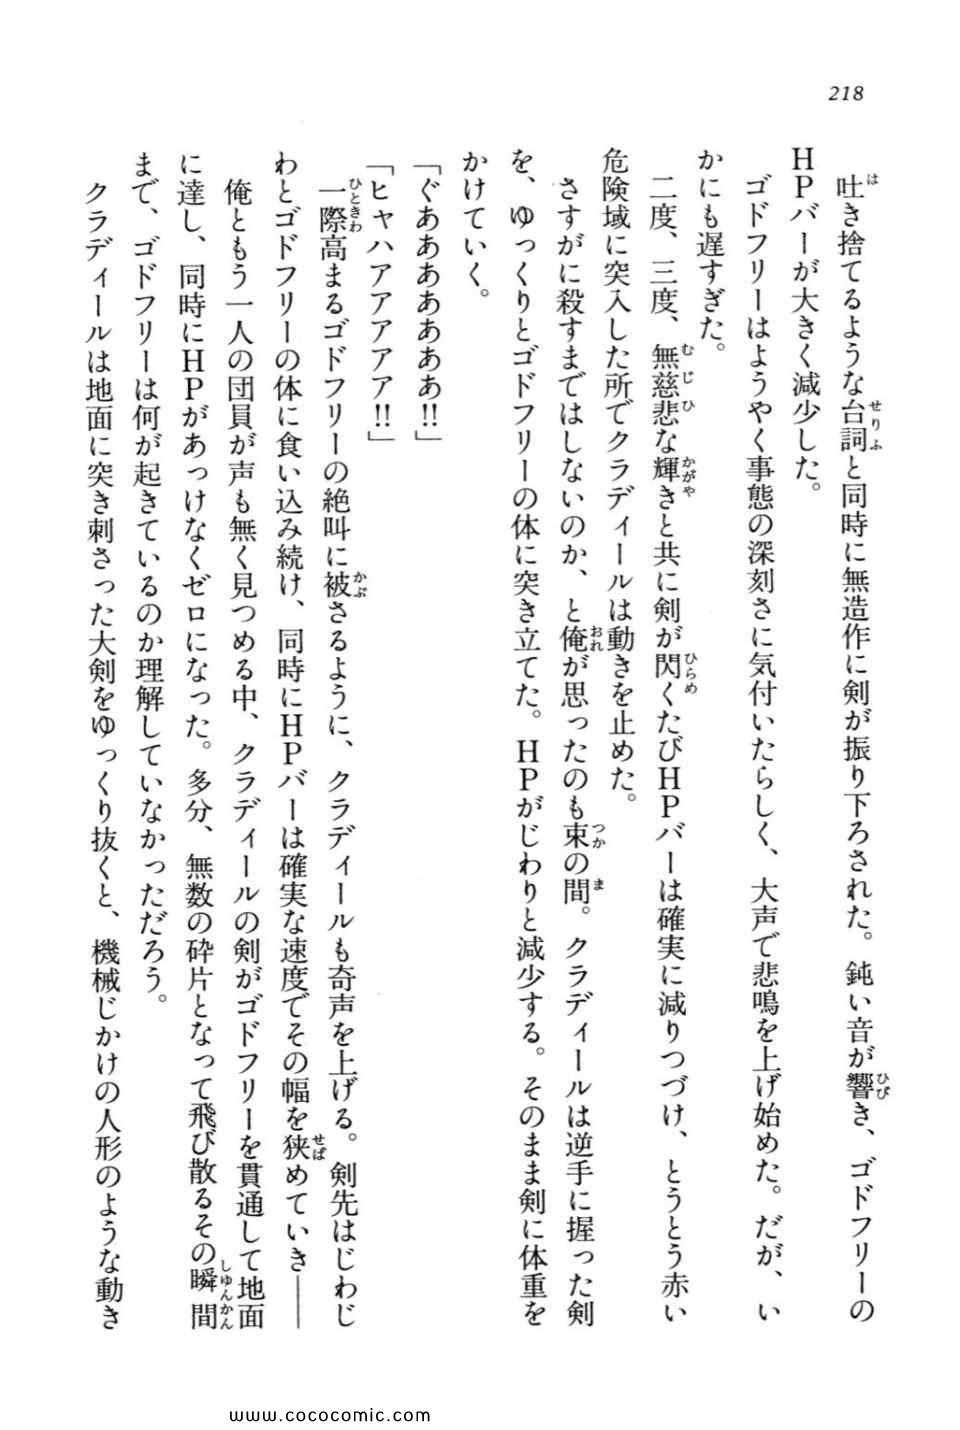 218
吐き捨てるような台詞と同時に無造作に剣が振り下ろされた。鈍い音が響き、ゴドフリーの
HPバーが大きく減少した。
ゴドフリーはようやく事態の深刻さに気付いたらしく、大声で悲鳴を上げ始めた。だが、い
かにも遅すぎた。
二度、三度、無慈悲な輝きと共に剣が閃くたびHPバーは確実に減りつづけ、とうとう赤い
危険域に突入した所でクラディールは動きを止めた。
さすがに殺すまではしないのか、と俺が思ったのも束の間。クラディールは逆手に握った剣
を、ゆっくりとゴドフリーの体に突き立てた。HPがじわりと減少する。そのまま剣に体重を
かけていく。
「ぐあああああああ!!」
「ヒャハアアアアア!!」
一際高まるゴドフリーの絶叫に被さるように、クラディールも奇声を上げる。剣先はじわじ
わとゴドフリーの体に食い込み続け、同時にHPバーは確実な速度でその幅を狭めていき――
俺ともう一人の団員が声も無く見つめる中、クラディールの剣がゴドフリーを貫通して地面
に達し、同時にHPがあっけなくゼロになった。多分、無数の砕片となって飛び散るその瞬間
まで、ゴドフリーは何が起きているのか理解していなかっただろう。
クラディールは地面に突き刺さった大剣をゆっくり抜くと、機械じかけの人形のような動き
www.cococomic.com